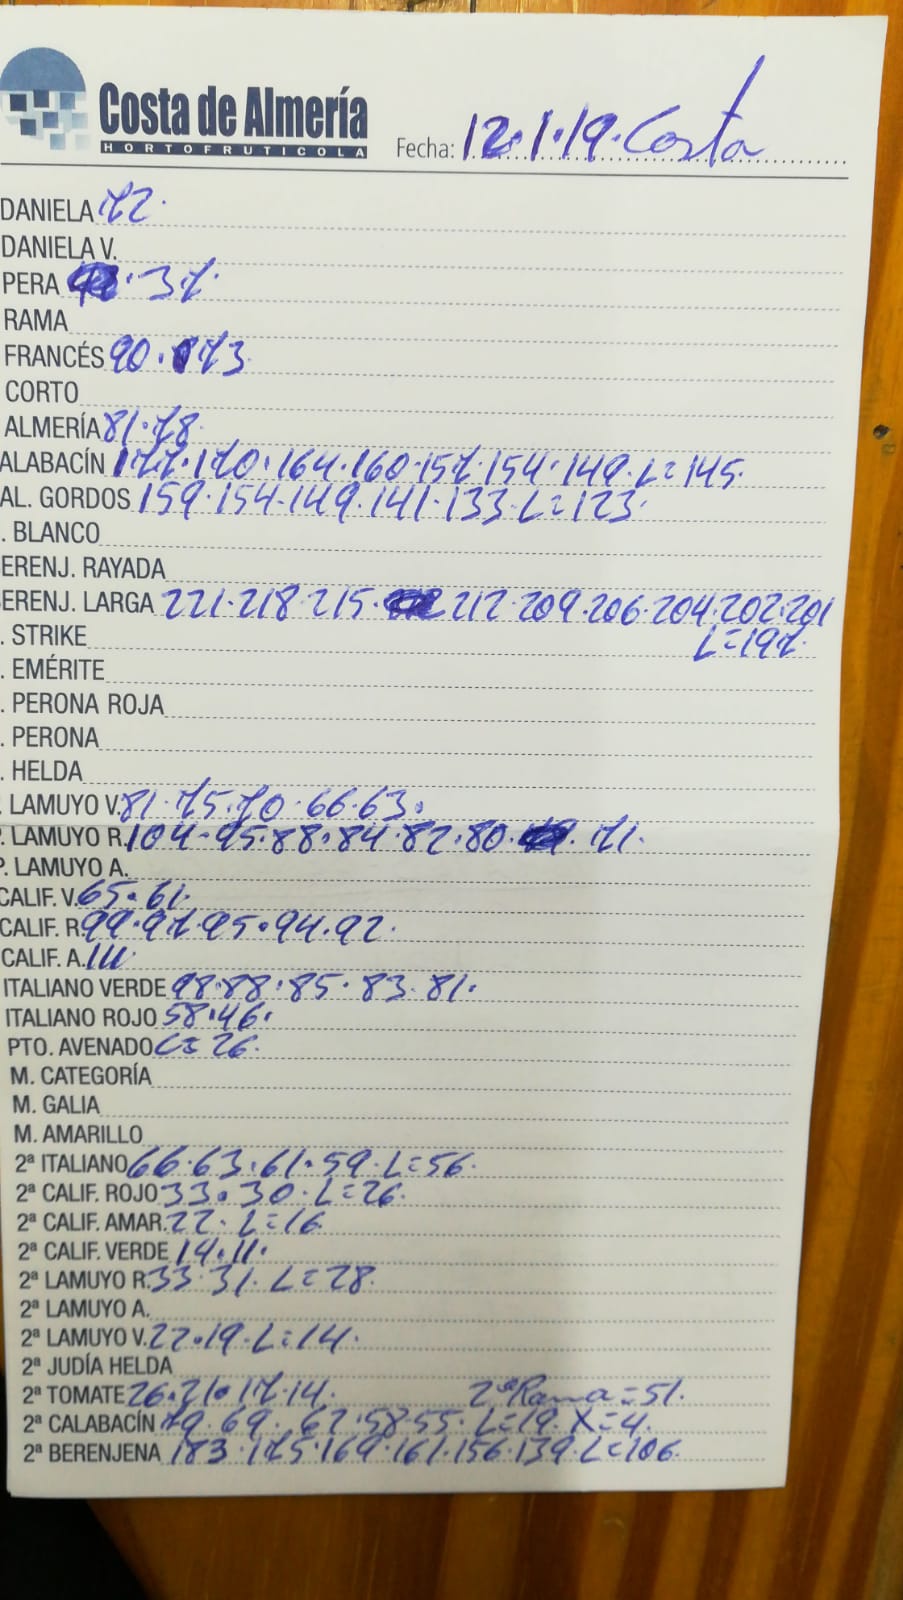 Costa de Almería
HORTOFRUTICOLA
Fecha: 12.1.19. Costa
DANIELA 72.
DANIELA V.
PERA . 37.
RAMA
FRANCÉS 90. 73
CORTO
ALMERÍA 81.78.
ALABACÍN 177.170.164.160.157.154.149.L=145.
AL. GORDOS 159.154.149.141.133.L=123.
. BLANCO
ERENJ. RAYADA
ERENJ. LARGA 221.218.215. 212.209.206.204.202.201
L=197.
. STRIKE
. EMÉRITE
. PERONA ROJA
. PERONA
. HELDA
. LAMUYO V. 81.75.70.66.63.
P. LAMUYO R. 104.95.88.84.82.80. 71.
P. LAMUYO A.
CALIF. V. 65.61.
CALIF. R. 99.97.95.94.92.
CALIF. A.
ITALIANO VERDE 98.88.85.83.81.
ITALIANO ROJO 58.46.
PTO. AVENADO L=26.
M. CATEGORÍA
M. GALIA
M. AMARILLO
2ª ITALIANO 66.63.61.59.L=56.
2ª CALIF. ROJO 33.30.L=26.
2ª CALIF. AMAR. 22.L=16
2ª CALIF. VERDE 14.11.
2ª LAMUYO R. 33.31.L=28.
2ª LAMUYO A.
2ª LAMUYO V. 22.19.L=14.
2ª JUDÍA HELDA
2ª TOMATE 26.21.17.14. 2ª Rama=51.
2ª CALABACÍN 79.69.62.58.55.L=19.X=4.
2ª BERENJENA 183.175.169.161.156.139.L=106.